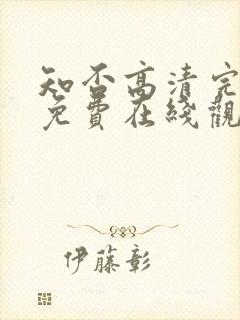 知否高清完
免費在綫觀
伊藤彰